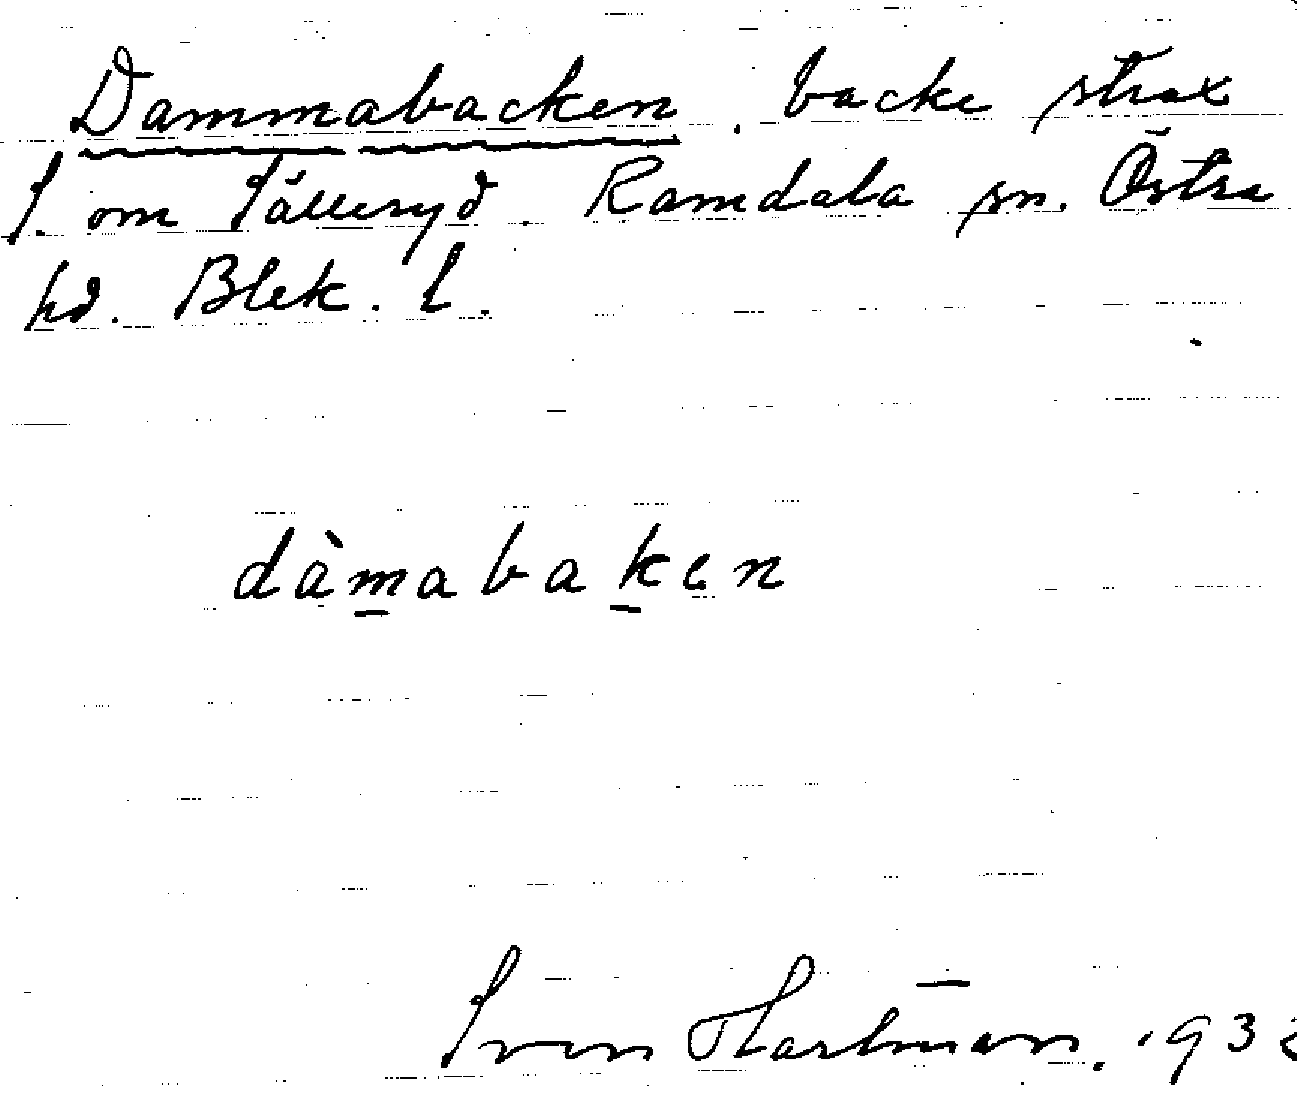 Dammabacken, backe strax
S. om Sälleryd. Ramdala sn. Östra
hd. Blek. l.
dàmabaken
Sven Hartman. 193